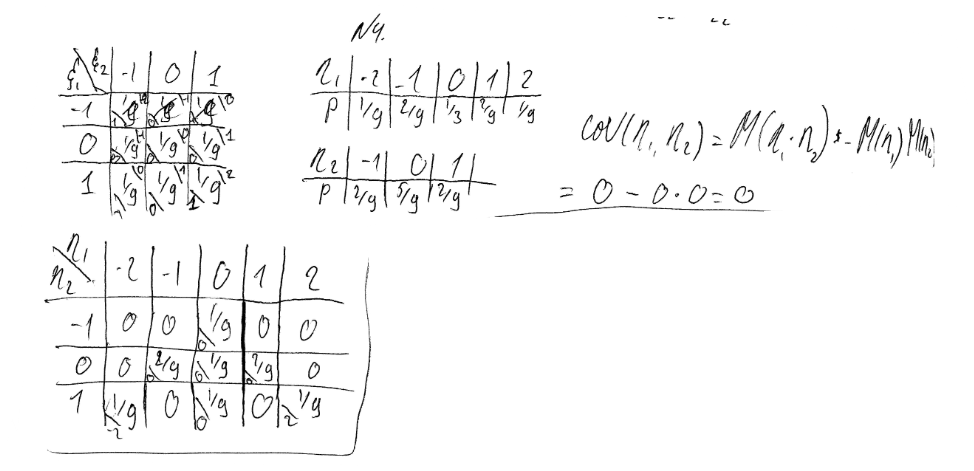 N4.
ξ₁ \ ξ₂ | -1 | 0 | 1
-1 | 1/9 | 1/9 | 1/9
0 | 1/9 | 1/9 | 1/9
1 | 1/9 | 1/9 | 1/9
η₁ | -2 | -1 | 0 | 1 | 2
P | 1/9 | 2/9 | 1/3 | 2/9 | 1/9
η₂ | -1 | 0 | 1
P | 2/9 | 5/9 | 2/9
cov(η₁, η₂) = M(η₁·η₂) - M(η₁)M(η₂)
= 0 - 0·0 = 0
η₁ \ η₂ | -2 | -1 | 0 | 1 | 2
-1 | 0 | 0 | 1/9 0 | 0 | 0
0 | 0 | 2/9 0 | 1/9 0 | 2/9 0 | 0
1 | 1/9 -2 | 0 | 1/9 0 | 0 | 1/9 2